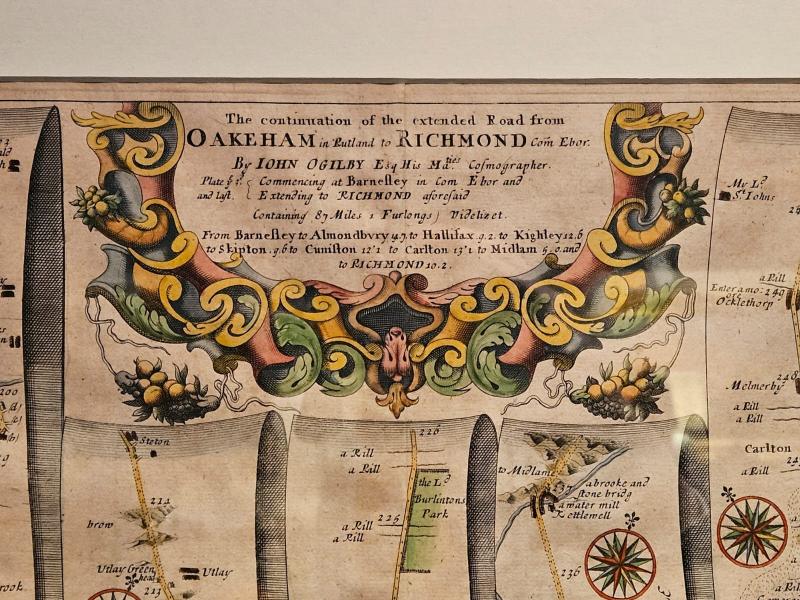 The continuation of the extended Road from
OAKEHAM in Rutland to RICHMOND Com Ebor.
By IOHN OGILBY Esq His Ma.ties Cosmographer.
Plate ye 1st. Commencing at Barnesley in Com Ebor and
and last. Extending to RICHMOND aforesaid
Containing 87 Miles 1 Furlongs) Videlizet.
From Barnesley to Almondbvry 14.7. to Hallifax .9.2. to Kighley 12.6
to Skipton .9.6 to Cuniston 12'1 to Carlton 13'1 to Midlam 5.0. and
to RICHMOND 10.2.
My Ld.
St. Iohns
a Rill
Enter a mo:
Ocklethorp
249
248
Melmerby
a Rill
a Rill
Carlton
a Rill
200
Steton
214
brow
Utlay Green
head
Utlay
213
226
a Rill
a Rill
the Ld.
Burlintons
Park
225
a Rill
a Rill
to Midlam
237
a brooke and
stone bridg
a water mill
Kettlewell
236